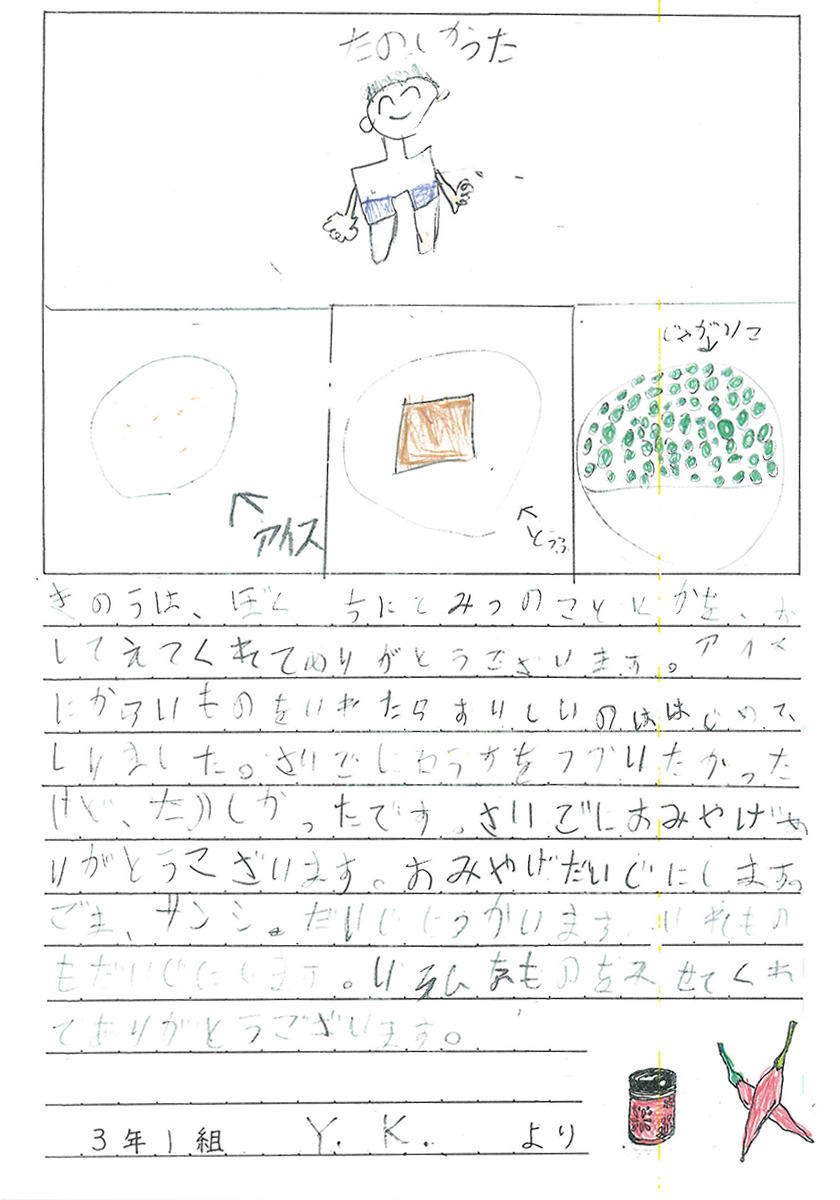 たのしかった
じゃがりこ
アイス
とうふ
きのうは、ぼく ちにとみつのこととかを、お
してえてくれてありがとうございます。アイス
にからいものをいれたらすりしいのははじめて、
しりました。さいごにセうかをつづりたかった
けど、たのしかったです。さいごにおみやげあ
りがとうございます。おみやげだいじにします。
ごま、サンショだいじにつかいます。いれもの
もだいじにします。いろいなものをみせてくれ
てありがとうございます。
3年1組 Y. K. より